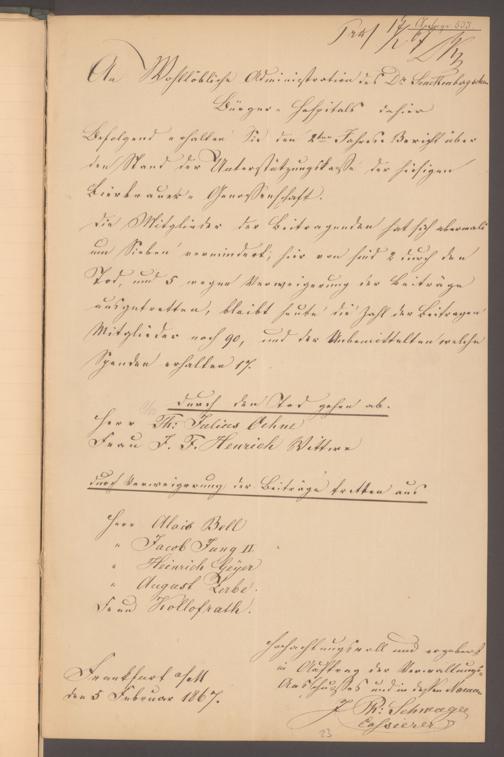 An Wohllöbliche Administration des Dr. Senckenbergischen
Bürger-Hospitals dahier
Befolgend erhalten Sie den 2ten Jahres Bericht über
den Stand der Unterstützungskasse der hiesigen
Bierbrauer-Genossenschaft.
Die Mitglieder der Beitragenden hat sich abermals
um Sieben vermindert, hier von sind 2 durch den
Tod, und 5 wegen Verweigerung der Beiträge
ausgetretten, bleibt heute die Zahl der Beitragenden
Mitglieder noch 90, und der Unbemittelten welche
Spenden erhalten 17.
Durch den Tod gehen ab.
Herr Th: Julius Ochne
Frau J. F. Henrich Wittwe
durch Verweigerung der Beiträge tretten aus
Herr Alois Boll
" Jacob Jung II
" Heinrich Geyer
" August Zerbe.
Frau Hollofrath.
Hochachtungsvoll und ergebenst
im Auftrag der Verwaltungs-
Ausschusses und in dessen Namen
Frankfurt a/M
den 5 Februar 1867.
J Ph: Schwager
Cassierer
23